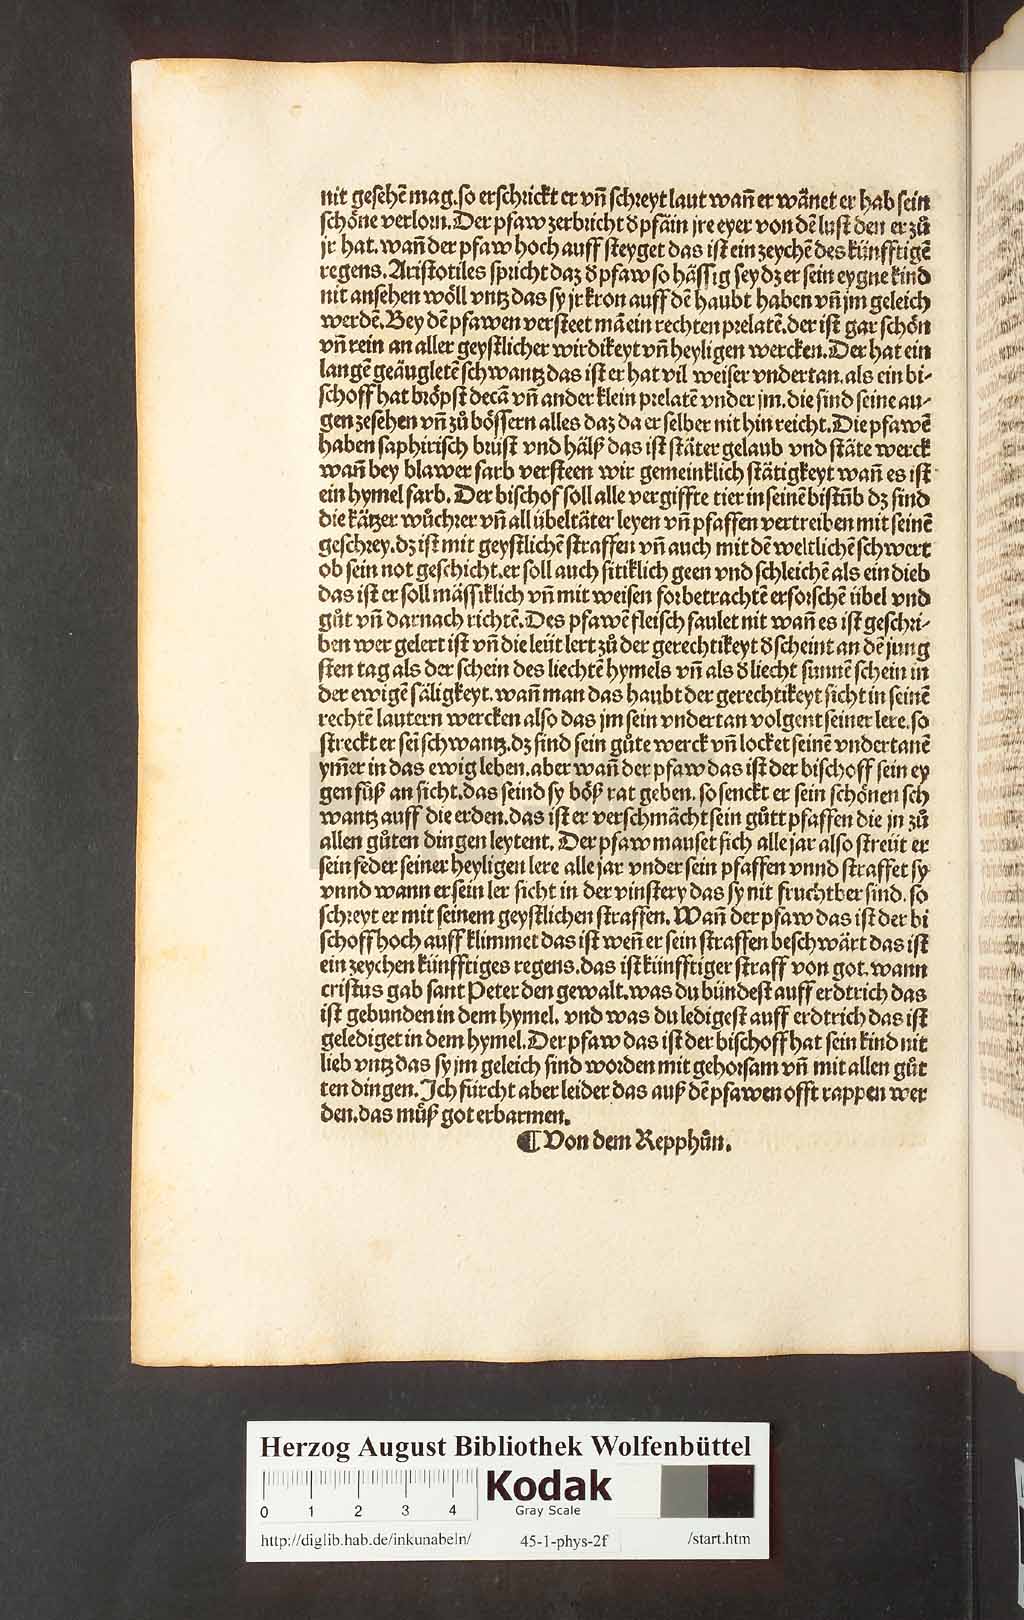 nit gesehē mag. so erschrickt er vn̄ schreyt laut wan̄ er wänet er hab sein
schöne verlorn. Der pfaw zerbricht d̓ pfäin jre eyer von dē lust den er zů
jr hat. wan̄ der pfaw hoch auff steyget das ist ein zeychē des künfftigē
regens. Aristotiles spricht daz d̓ pfaw so hässig sey dz er sein eygne kind
nit ansehen wöll vntz das sy jr kron auff dē haubt haben vn̄ jm geleich
werdē. Bey dē pfawen versteet mā ein rechten prelatē. der ist gar schön
vn̄ rein an aller geystlicher wirdikeyt vn̄ heyligen wercken. Der hat ein
langē geäugletē schwantz das ist er hat vil weiser vndertan. als ein bi-
schoff hat bröpst decā vn̄ ander klein prelatē vnder jm. die sind seine au-
gen zesehen vn̄ zů bössern alles daz da er selber nit hin reicht. Die pfawē
haben saphirisch brüst vnd hälß das ist stäter gelaub vnd stäte werck
wan̄ bey blawer farb versteen wir gemeinklich stätigkeyt wan̄ es ist
ein hymel farb. Der bischof soll alle vergiffte tier in seinē bistūb dz sind
die kätzer wůchrer vn̄ all übeltäter leyen vn̄ pfaffen vertreiben mit seinē
geschrey. dz ist mit geystlichē straffen vn̄ auch mit dē weltlichē schwert
ob sein not geschicht. er soll auch sitiklich geen vnd schleichē als ein dieb
das ist er soll mässiklich vn̄ mit weisen forbetrachtē erforschē übel vnd
gůt vn̄ darnach richtē. Des pfawē fleisch faulet nit wan̄ es ist geschri-
ben wer gelert ist vn̄ die leüt lert zů der gerechtikeyt d̓ scheint an dē jung
sten tag als der schein des liechtē hymels vn̄ als d̓ liecht sunnē schein in
der ewigē säligkeyt. wan̄ man das haubt der gerechtikeyt sicht in seinē
rechtē lautern wercken also das jm sein vndertan volgent seiner lere. so
streckt er sei schwantz. dz sind sein gůte werck vn̄ locket seinē vndertanē
ym̄er in das ewig leben. aber wan̄ der pfaw das ist der bischoff sein ey
gen füß an sicht. das seind sy böß rat geben. so senckt er sein schönen sch
wantz auff die erden. das ist er verschmächt sein gůtt pfaffen die jn zů
allen gůten dingen leytent. Der pfaw mauset sich alle jar also streüt er
sein feder seiner heyligen lere alle jar vnder sein pfaffen vnnd straffet sy
vnnd wann er sein ler sicht in der vinstery das sy nit fruchtber sind. so
schreyt er mit seinem geystlichen straffen. Wan̄ der pfaw das ist der bi
schoff hoch auff klimmet das ist wen̄ er sein straffen beschwärt das ist
ein zeychen künfftiges regens. das ist künfftiger straff von got. wann
cristus gab sant Peter den gewalt. was du bündest auff erdtrich das
ist gebunden in dem hymel. vnd was du ledigest auff erdtrich das ist
gelediget in dem hymel. Der pfaw das ist der bischoff hat sein kind nit
lieb vntz das sy jm geleich sind worden mit gehorsam vn̄ mit allen gůt
ten dingen. Ich fürcht aber leider das auß dē pfawen offt rappen wer
den. das můß got erbarmen.
¶ Von dem Repphůn.
Herzog August Bibliothek Wolfenbüttel
0 1 2 3 4
Kodak
Gray Scale
http://diglib.hab.de/inkunabeln/ 45-1-phys-2f /start.htm